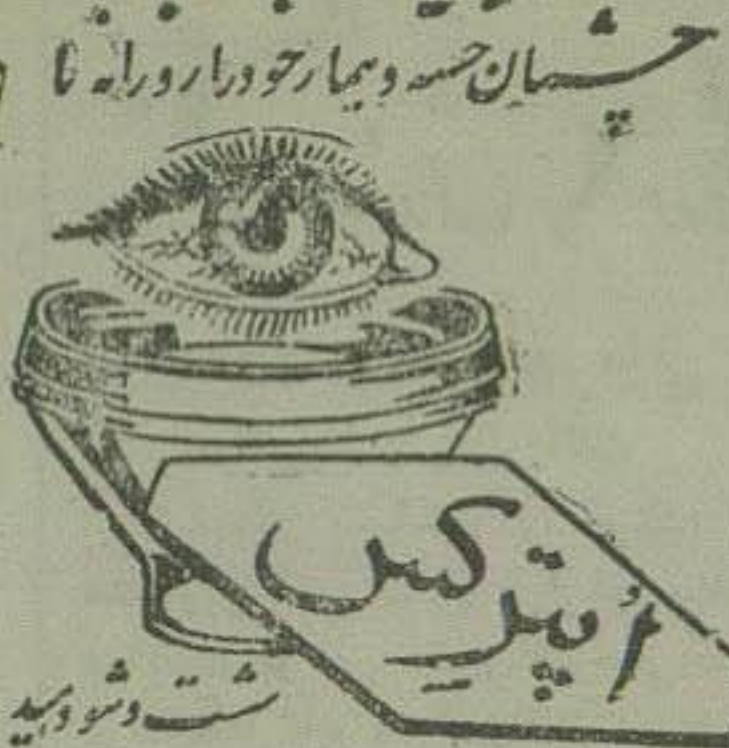 چشمان خسته و بیمار خود را روزانه با
اُپترکس
شست و شو دهید